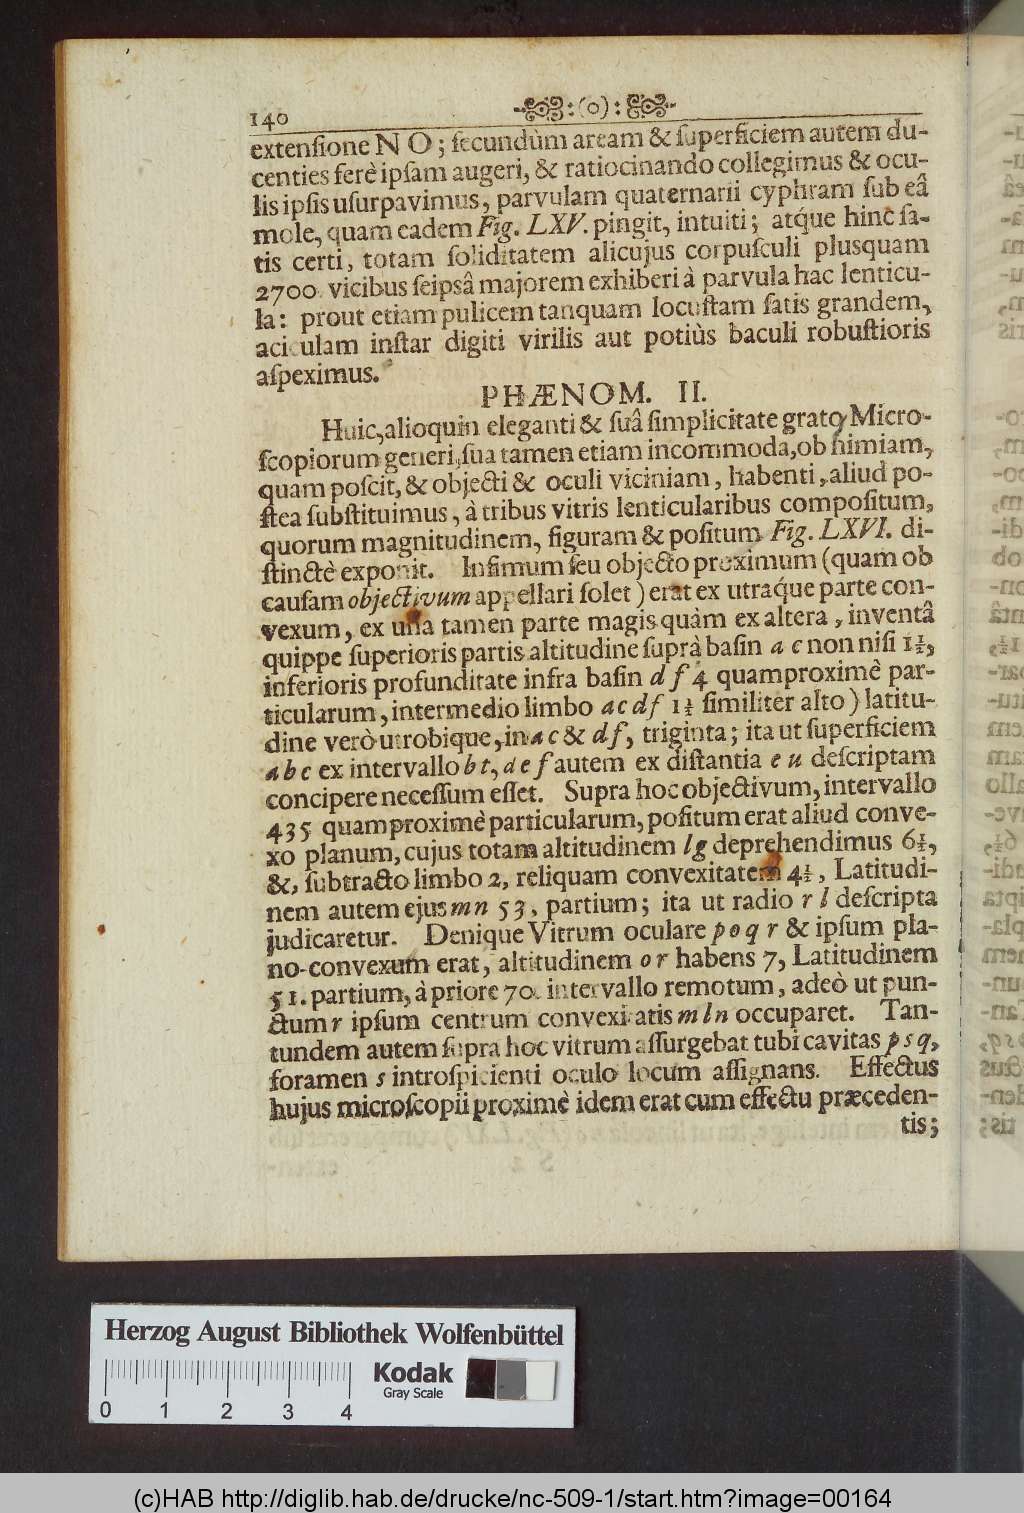 140 :(o):
extenſione N O; ſecundùm aream & ſuperficiem autem du-
centies ferè ipſam augeri, & ratiocinando collegimus & ocu-
lis ipſis uſurpavimus, parvulam quaternarii cyphram ſub eâ
mole, quam eadem Fig. LXV. pingit, intuiti; atq́ue hinc ſa-
tis certi, totam ſoliditatem alicujus corpuſculi plusquam
2700. vicibus ſeipsâ majorem exhiberi à parvula hac lenticu-
la: prout etiam pulicem tanquam locuſtam ſatis grandem,
aciculam inſtar digiti virilis aut potiùs baculi robuſtioris
aſpeximus.
PHÆNOM. II.
Huic, alioquin eleganti & ſuâ ſimplicitate grato Micro-
ſcopiorum generi, ſua tamen etiam incommoda, ob nimiam,
quam poſcit, & objecti & oculi viciniam, habenti, aliud po-
ſtea ſubſtituimus, à tribus vitris lenticularibus compoſitum,
quorum magnitudinem, figuram & poſitum Fig. LXVI. di-
ſtinctè exponit. Infimum ſeu objecto proximum (quam ob
cauſam objectivum appellari ſolet) erat ex utraq́ue parte con-
vexum, ex una tamen parte magis quàm ex altera, inventâ
quippe ſuperioris partis altitudine ſuprà baſin a c non niſi 1½,
inferioris profunditate infra baſin d f 4 quamproximè par-
ticularum, intermedio limbo ac df 1½ ſimiliter alto) latitu-
dine verò utrobique, in a c & df, triginta; ita ut ſuperficiem
a b c ex intervallo b t, d e f autem ex diſtantia e u deſcriptam
concipere neceſſum eſſet. Supra hoc objectivum, intervallo
435 quamproximè particularum, poſitum erat aliud conve-
xo planum, cujus totam altitudinem lg deprehendimus 6½,
&, ſubtracto limbo 2, reliquam convexitatem 4½, Latitudi-
nem autem ejus mn 53, partium; ita ut radio r l deſcripta
judicaretur. Denique Vitrum oculare p o q r & ipſum pla-
no-convexum erat, altitudinem o r habens 7, Latitudinem
51. partium, à priore 70. intervallo remotum, adeò ut pun-
ctum r ipſum centrum convexitatis m l n occuparet. Tan-
tundem autem ſupra hoc vitrum aſſurgebat tubi cavitas p s q,
foramen s introſpicienti oculo locum aſſignans. Effectus
hujus microſcopii proximè idem erat cum effectu præceden-
tis;
Herzog August Bibliothek Wolfenbüttel
Kodak
Gray Scale
0 1 2 3 4
(c)HAB http://diglib.hab.de/drucke/nc-509-1/start.htm?image=00164